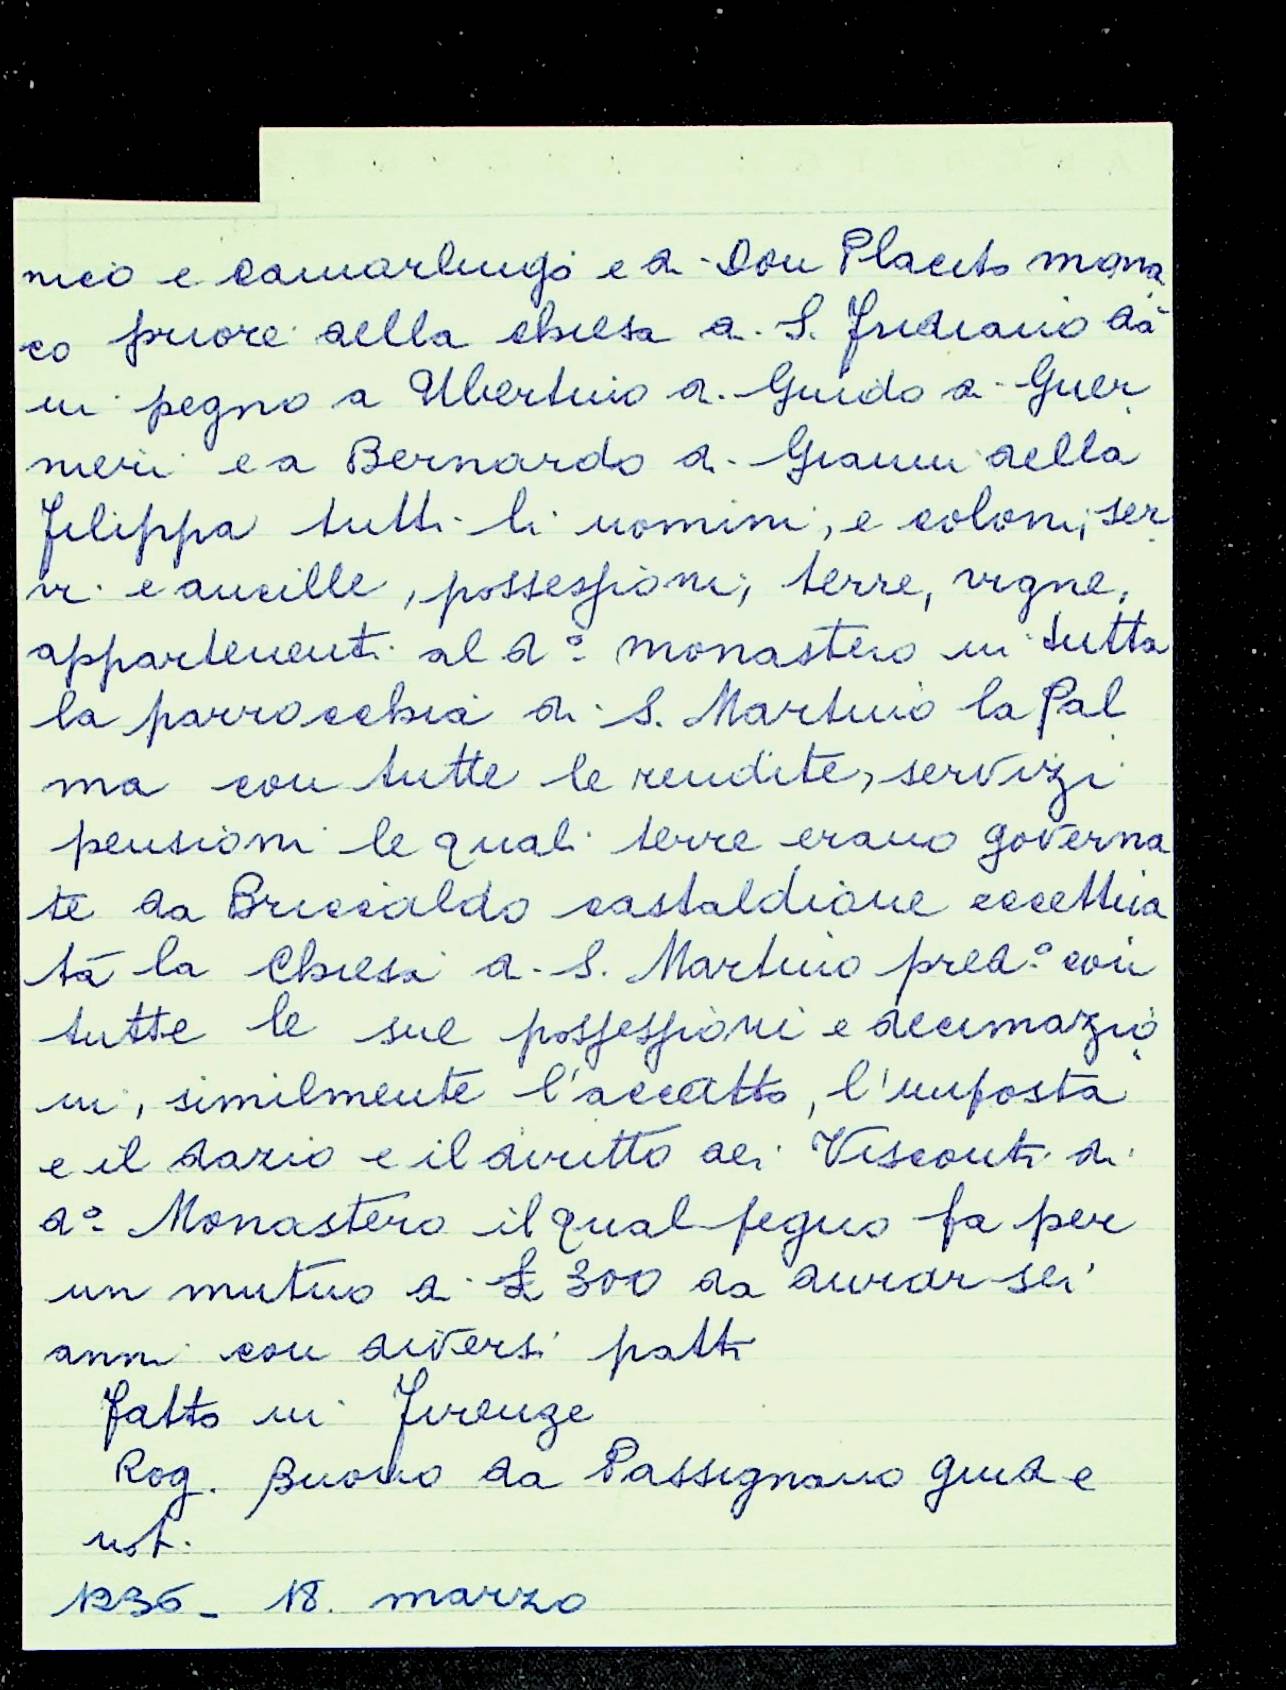 nico e camarlingo e di Don Placito mona
co priore della chiesa di S. Frediano dà
in pegno a Ubertino di Guido di Guer
nieri e a Bernardo di Gianni della
Filippa tutti li uomini, e coloni, ser
vi e ancille, possessioni, terre, vigne,
appartenenti al dº monastero in tutta
la parrocchia di S. Martino la Pal
ma con tutte le rendite, servizi
pensioni le quali terre erano governa
te da Bricialdo castaldione eccettua
ta la Chiesa di S. Martino predº con
tutte le sue possessioni e decimazio
ni, similmente l'accatto, l'imposta
e il dazio e il diritto dei Visconti di
dº Monastero il qual pegno fa per
un mutuo di £ 300 da durar sei
anni con diversi patti
fatto in Firenze
Rog. Buono da Passignano giud e
not.
1236 - 18. marzo